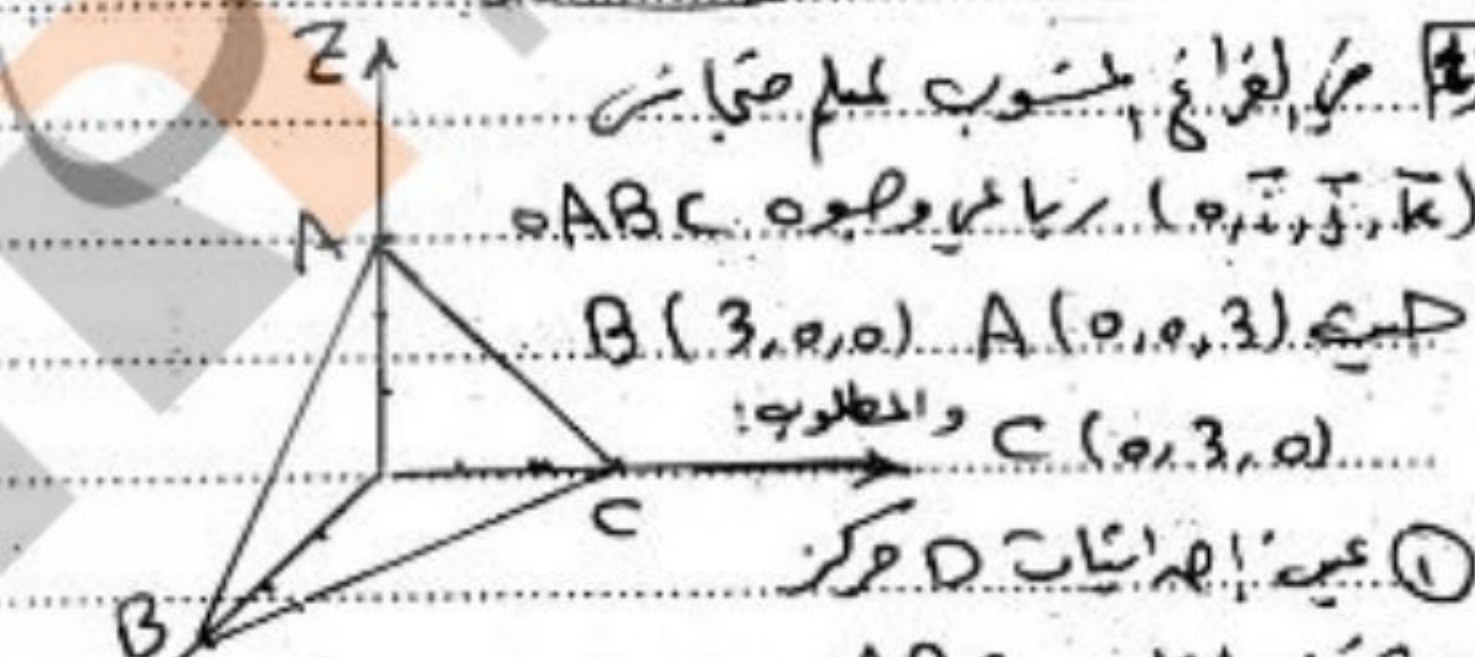 في الفراغ المنسوب لمعلم متجانس
(o, i, j, k) رباعي وجوه ABC o
حيث A(0,0,3) B(3,0,0)
C(0,3,0) والمطلوب:
① عين إحداثيات D مركز
ABC
Z
A
C
B